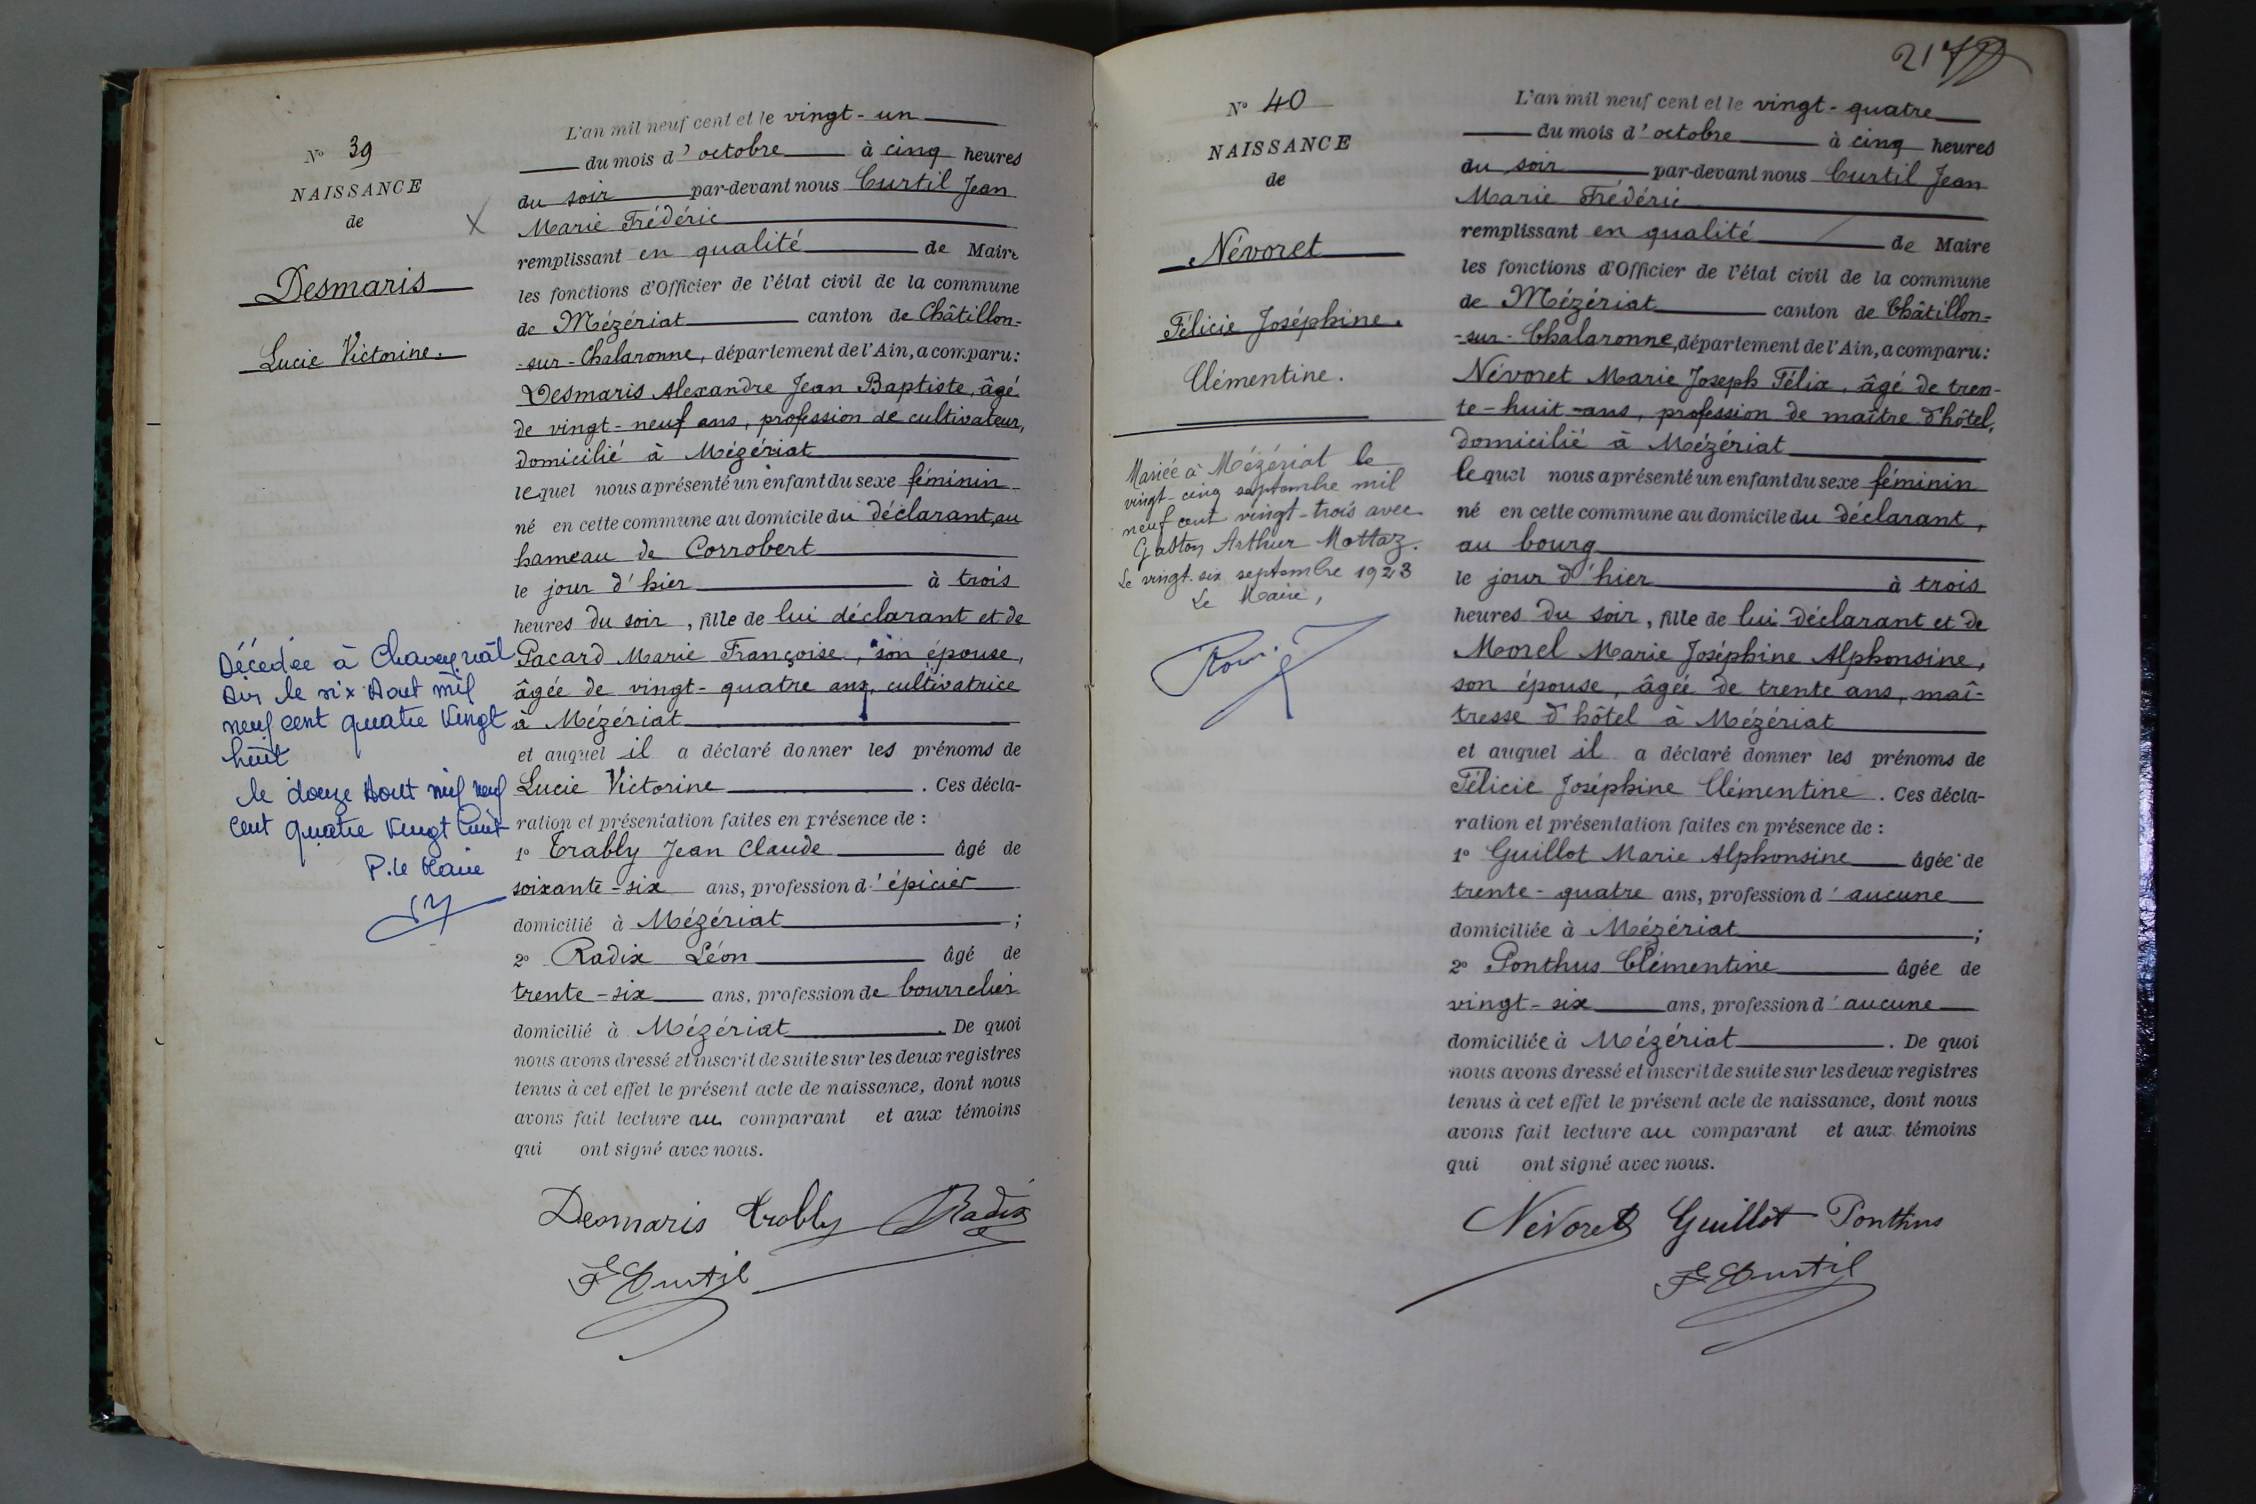 N° 39
NAISSANCE
de
X
Desmaris
Lucie Victorine.
Décédée à Chaveyriat
Ain le six Aout mil
neuf cent quatre vingt
huit
le douze Aout mil neuf
cent quatre vingt huit
P. le Maire
L'an mil neuf cent et le vingt-un
du mois d'octobre à cinq heures
du soir par-devant nous Curtil Jean
Marie Frédéric
remplissant en qualité de Maire
les fonctions d'Officier de l'état civil de la commune
de Mézériat canton de Châtillon-
-sur-Chalaronne, département de l'Ain, a comparu :
Desmaris Alexandre Jean Baptiste, âgé
de vingt-neuf ans, profession de cultivateur,
domicilié à Mézériat
lequel nous a présenté un enfant du sexe féminin
né en cette commune au domicile du déclarant, au
hameau de Corrobert
le jour d'hier à trois
heures du soir, fille de lui déclarant et de
Pacard Marie Françoise, son épouse,
âgée de vingt-quatre ans, cultivatrice
à Mézériat
et auquel il a déclaré donner les prénoms de
Lucie Victorine . Ces décla-
ration et présentation faites en présence de :
1° Trably Jean Claude âgé de
soixante-six ans, profession d'épicier
domicilié à Mézériat ;
2° Radix Léon âgé de
trente-six ans, profession de bourrelier
domicilié à Mézériat . De quoi
nous avons dressé et inscrit de suite sur les deux registres
tenus à cet effet le présent acte de naissance, dont nous
avons fait lecture au comparant et aux témoins
qui ont signé avec nous.
Desmaris Trably Radix
F Curtil
217
N° 40
NAISSANCE
de
Névoret
Félicie Joséphine.
Clémentine.
Mariée à Mézériat le
vingt-cinq septembre mil
neuf cent vingt-trois avec
Gaston Arthur Mottaz.
Le vingt-six septembre 1923
Le Maire,
L'an mil neuf cent et le vingt-quatre
du mois d'octobre à cinq heures
du soir par-devant nous Curtil Jean
Marie Frédéric
remplissant en qualité de Maire
les fonctions d'Officier de l'état civil de la commune
de Mézériat canton de Châtillon-
-sur-Chalaronne, département de l'Ain, a comparu :
Névoret Marie Joseph Félix, âgé de tren-
te-huit-ans, profession de maître d'hôtel,
domicilié à Mézériat
lequel nous a présenté un enfant du sexe féminin
né en cette commune au domicile du déclarant,
au bourg
le jour d'hier à trois
heures du soir, fille de lui déclarant et de
Morel Marie Joséphine Alphonsine,
son épouse, âgée de trente ans, maî-
tresse d'hôtel à Mézériat
et auquel il a déclaré donner les prénoms de
Félicie Joséphine Clémentine . Ces décla-
ration et présentation faites en présence de :
1° Guillot Marie Alphonsine âgée de
trente-quatre ans, profession d'aucune
domiciliée à Mézériat ;
2° Ponthus Clémentine âgée de
vingt-six ans, profession d'aucune
domiciliée à Mézériat . De quoi
nous avons dressé et inscrit de suite sur les deux registres
tenus à cet effet le présent acte de naissance, dont nous
avons fait lecture au comparant et aux témoins
qui ont signé avec nous.
Névoret Guillot Ponthus
F Curtil